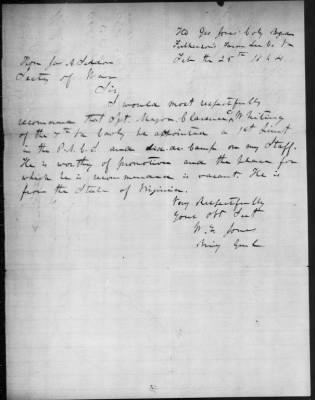 Hd Qrs Jones' Cavly Brgade
Lee Co. Va
Feb the 25th 1864
Hon Jas A Seddon
Secty of War
Sir,
I would most respectfully
recommend that Sgt. Major Clarence W Whiting
of the 7th Va Cavly be appointed a 1st Lieut
in the P.A.C.S. and Aid de Camp on my Staff.
He is worthy of promotion and the place for
which he is recommended is vacant. He is
from the State of Virginia.
Very Respectfully
Your Obt Svt
W. E. Jones
Brig Genl